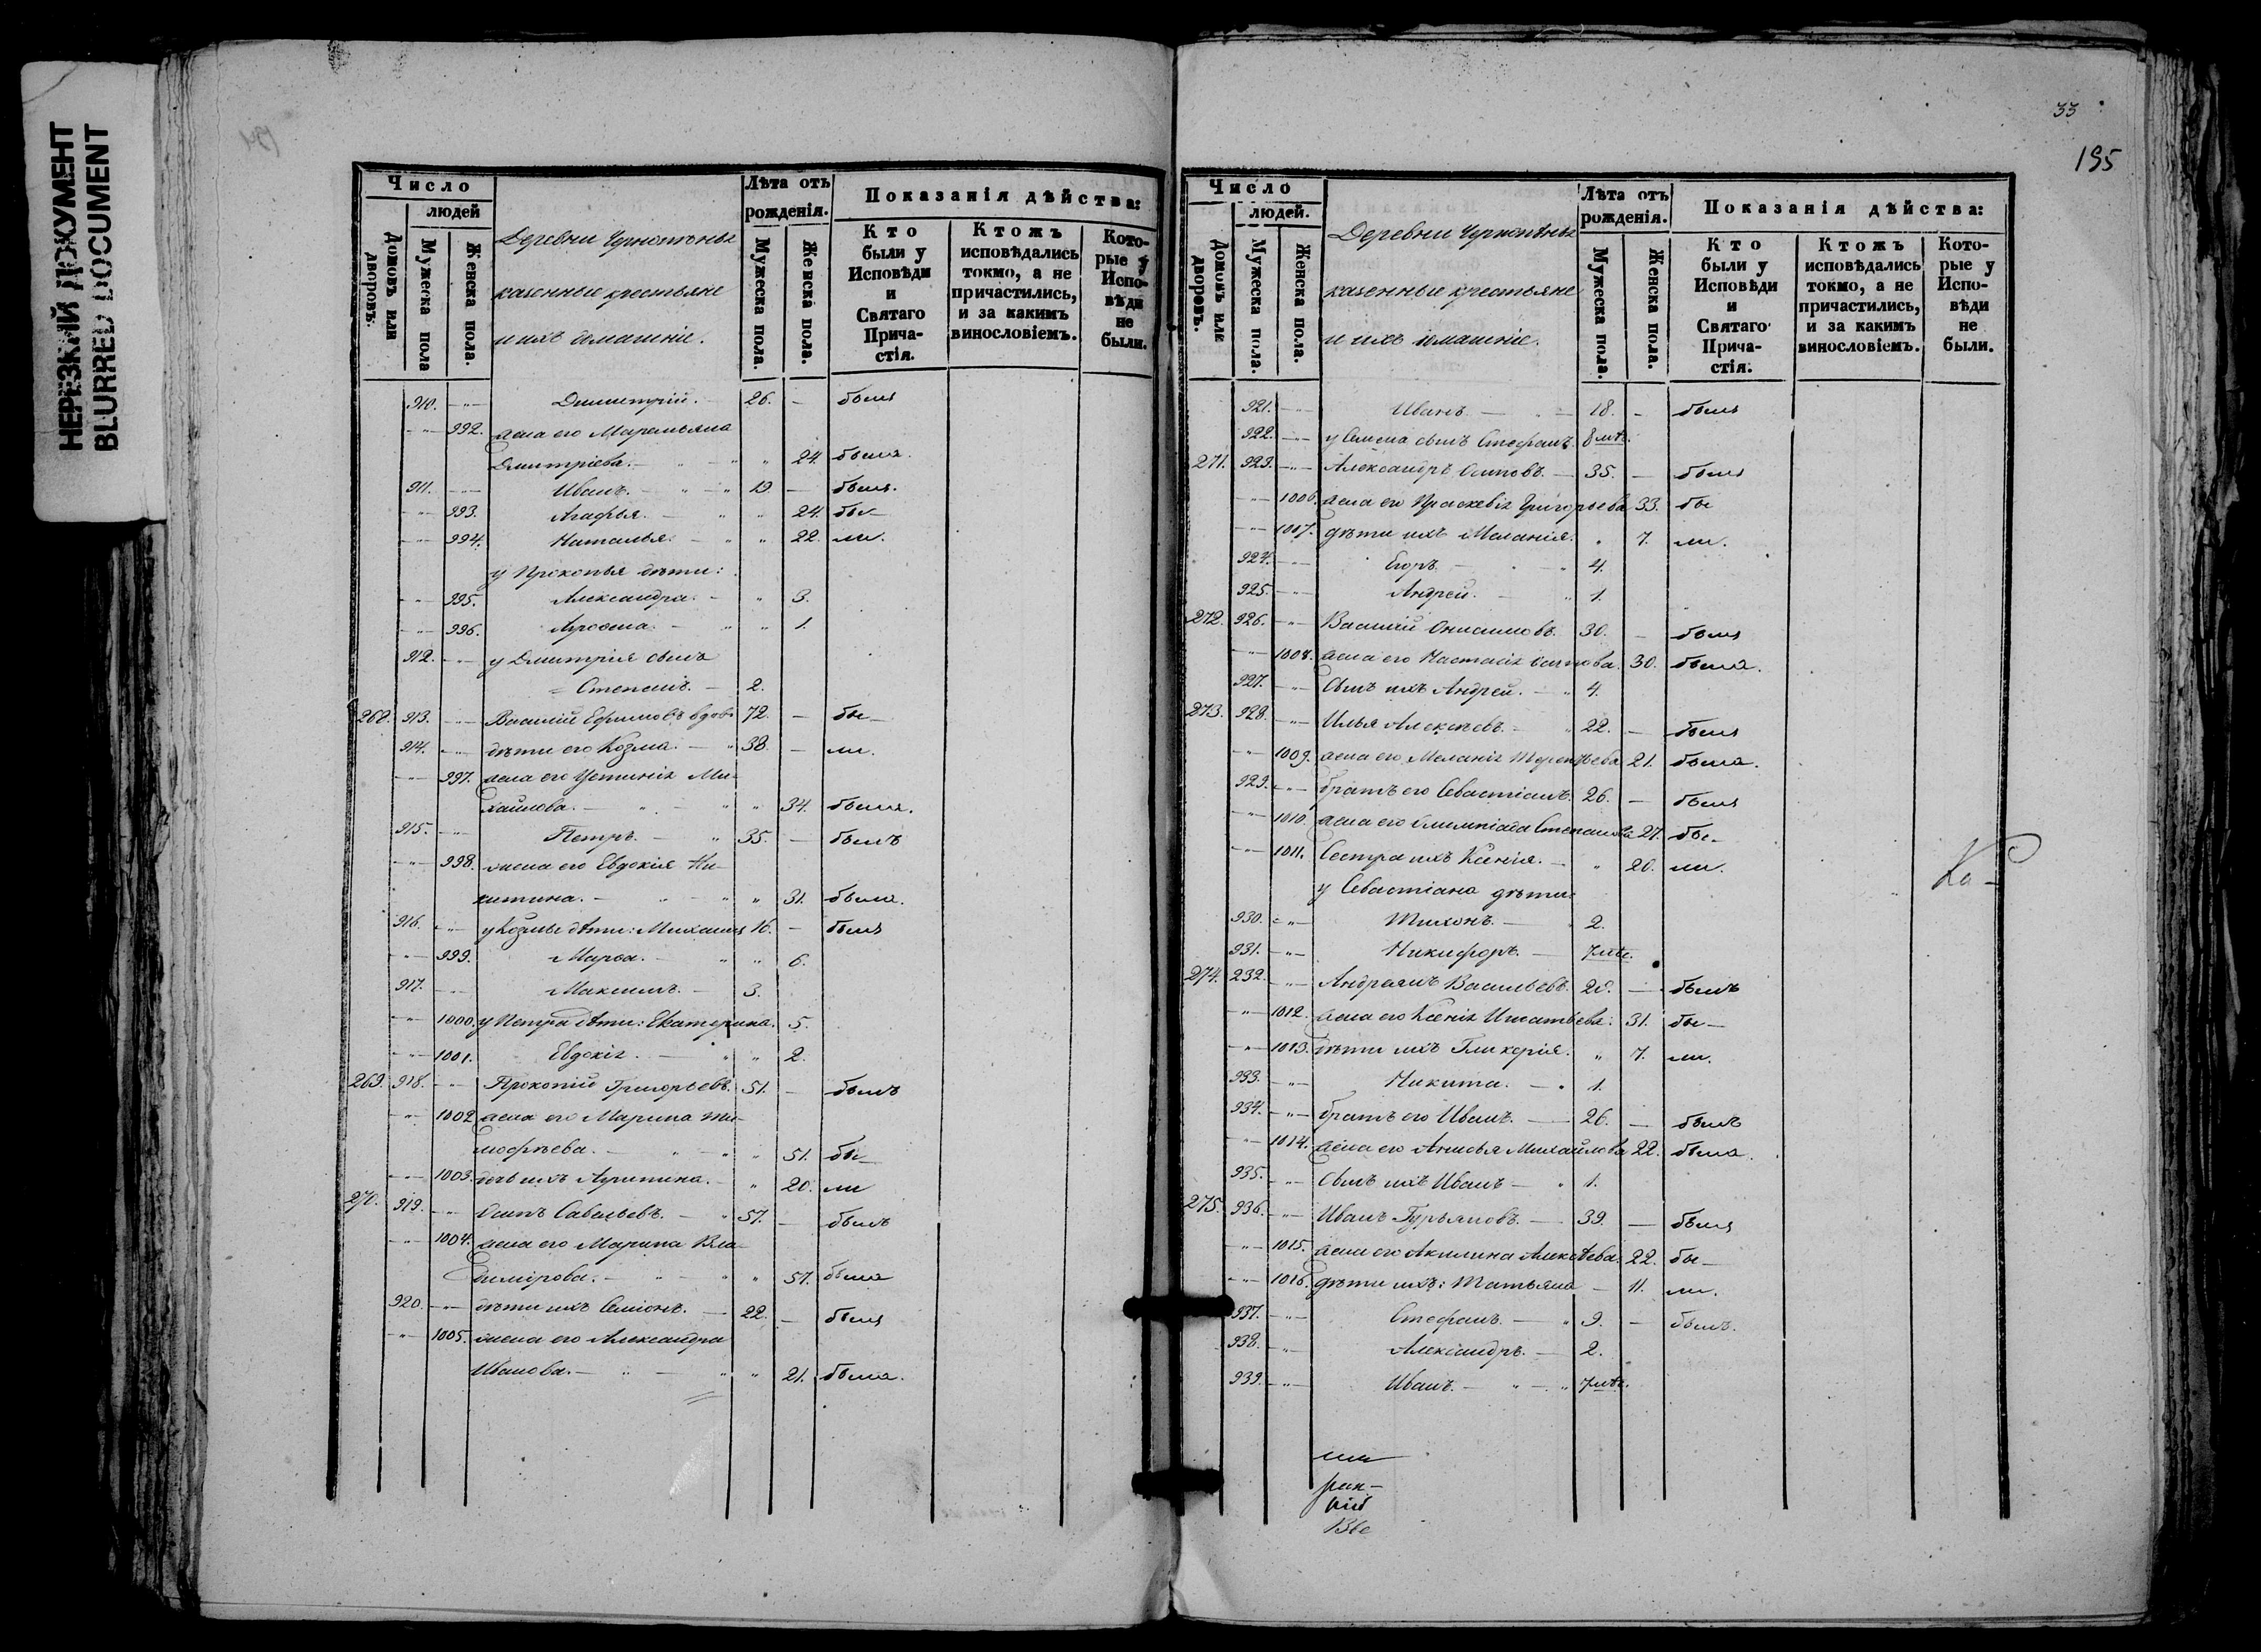 НЕРЕЗКИЙ ДОКУМЕНТ
BLURRED DOCUMENT
Число
людей
Домовъ или дворовъ.
Мужеска пола
Женска пола.
Деревни
казенные крестьяне
и ихъ домашніе.
Лѣта отъ рожденія.
Мужеска пола.
Женска пола.
Показанія дѣйства:
Кто были у Исповѣди и Святаго Причастія.
Ктожъ исповѣдались токмо, а не причастились, и за какимъ винословіемъ.
Которые у Исповѣди не были.
910. Димитрій. 26. – былъ
992. жена его Маремьяна
Дмитріева. 24. была.
911. Иванъ. 19. – былъ.
993. Агафья. 24. бы–
994. Наталья. 22. ли.
у Прокопья дѣти:
995. Александра. 3.
996. 1.
912. у Дмитрія сынъ
Степанъ. 2.
268. 913. Василій Ефимовъ вдовъ 72. – бы–
914. дѣти его Козма. 38. – ли.
997. жена его Устинія Ми-
хайлова. 34. была.
915. Петръ. 35. – былъ
998. жена его Евдокія Ни-
китина. 31. была.
916. у Козмы дѣти: Михаилъ 16. – былъ
999. Марѳа. 6.
917. Максимъ. 3.
1000. у Петра дѣти: Екатерина. 5.
1001. Евдокія. 2.
269. 918. Прокопій Григорьевъ. 51. – былъ
1002 жена его Марина Ти-
мофѣева. 51. бы–
1003. дочь ихъ 20. ли
270. 919. Осипъ Савельевъ. 57. – былъ
1004. жена его Марина Вла-
димірова. 57. была
920. дѣти ихъ Семіонъ. 22. – былъ
1005. жена его Александра
Иванова. 21. была.
33
195
Число
людей.
Домовъ или дворовъ.
Мужеска пола.
Женска пола.
Деревни
казенные крестьяне
и ихъ домашніе.
Лѣта отъ рожденія.
Мужеска пола.
Женска пола.
Показанія дѣйства:
Кто были у Исповѣди и Святаго Причастія.
Ктожъ исповѣдались токмо, а не причастились, и за какимъ винословіемъ.
Которые у Исповѣди не были.
921. Иванъ. 18. – былъ
922. у Семена сынъ Стефанъ. 8 мѣ.
271. 923. Александръ Осиповъ. 35. – былъ
1006. жена его Праскевія Григорьева 33. бы
1007. дѣти ихъ Меланія. 7. ли.
924. Егоръ. 4.
925. Андрей. 1.
272. 926. Василій Онисимовъ. 30. – былъ
1008. жена его Настасія Осипова. 30. была.
927. Сынъ ихъ Андрей. 4.
273. 928. Илья Алексѣевъ. 22. – былъ
1009. жена его Меланія Терентьева 21. была.
929. братъ его Севастіанъ. 26. – былъ
1010. жена его Олимпіада Степанова 27. бы–
1011. Сестра ихъ Ксенія. 20. ли.
у Севастіана дѣти:
930. Тихонъ. 2.
931. Никифоръ. 7 мѣс.
274. 232. Андреянъ Васильевъ. 28. – былъ
1012. жена его Ксенія Игнатьева. 31. бы–
1013. дѣти ихъ Гликерія. 7. ли.
933. Никита. 1.
934. братъ его Иванъ. 26. – былъ
1014. жена его Анисья Михайлова 22. была.
935. Сынъ ихъ Иванъ 1.
275. 936. Иванъ Гурьяновъ. 39. – былъ
1015. жена его Акилина Алексѣева. 22. бы–
1016. дѣти ихъ: Татьяна 11. ли.
937. Стефанъ. 9. – былъ.
938. Александръ. 2.
939. Иванъ. 7 мѣс.
Ка–